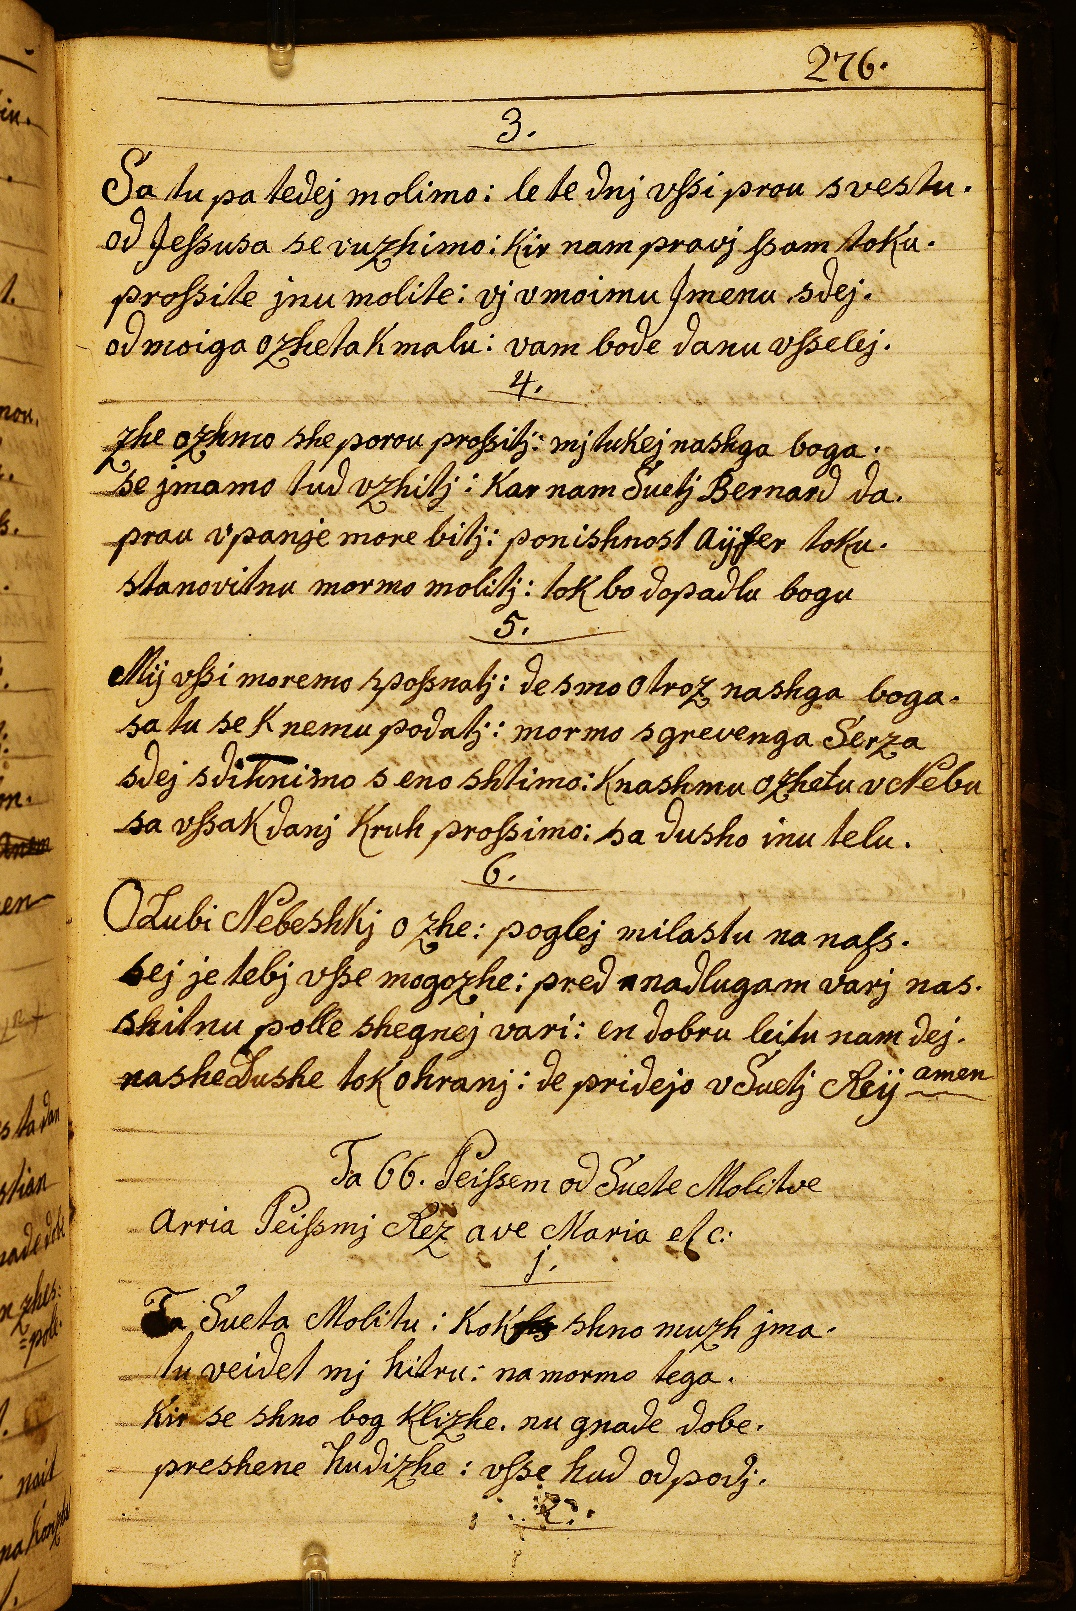 276.
3.
Sa tu pa tedej molimo: le te dnj vſsi prou svestu.
od Jeſsusa se vuzhimo: Kir nam pravj ſsam toku.
proſsite jnu molite: vj v moimu Jmenu sdej.
od moiga ozheta K malu: vam bode danu vſselej.
4.
zhe ozhmo she porou proſsitj: mj tukej nashga boga.
se jmamo tud vzhitj: Kar nam Suetj Bernard da.
prau vpanje more bitj: ponishnost aÿfer toku.
stanovitnu mormo molitj: tok bo dopadlu bogu
5.
Mij vſsi moremo spoſsnatj: de smo otroz nashga boga.
sa tu se K nemu podatj: mormo sgrevenga Serza
sdej sdihnimo s eno shtimo: K nashmu ozhetu v Nebu
sa vſsaK danj Kruh proſsimo: sa dusho inu telu.
6.
O Lubi NebeshKj ozhe: poglej milastu na naſs.
sej je tebj vſse mogozhe: pred nadlugam varj nas.
shitnu polle shegnej vari: en dobru leitu nam dej.
nashe Dushe toK ohranj: de pridejo v Suetj Reÿ amen
Ta 66. Peiſsem od Suete Molitve
Arria Peiſsmj Rez ave Maria etc:
1.
Ta Sueta Molitu: KoK shno muzh jma.
tu veidet mj hitru: na mormo tega.
Kir se shno bog Klizhe. nu gnade dobe.
preshene hudizhe: vſse hud odpodj.
2.